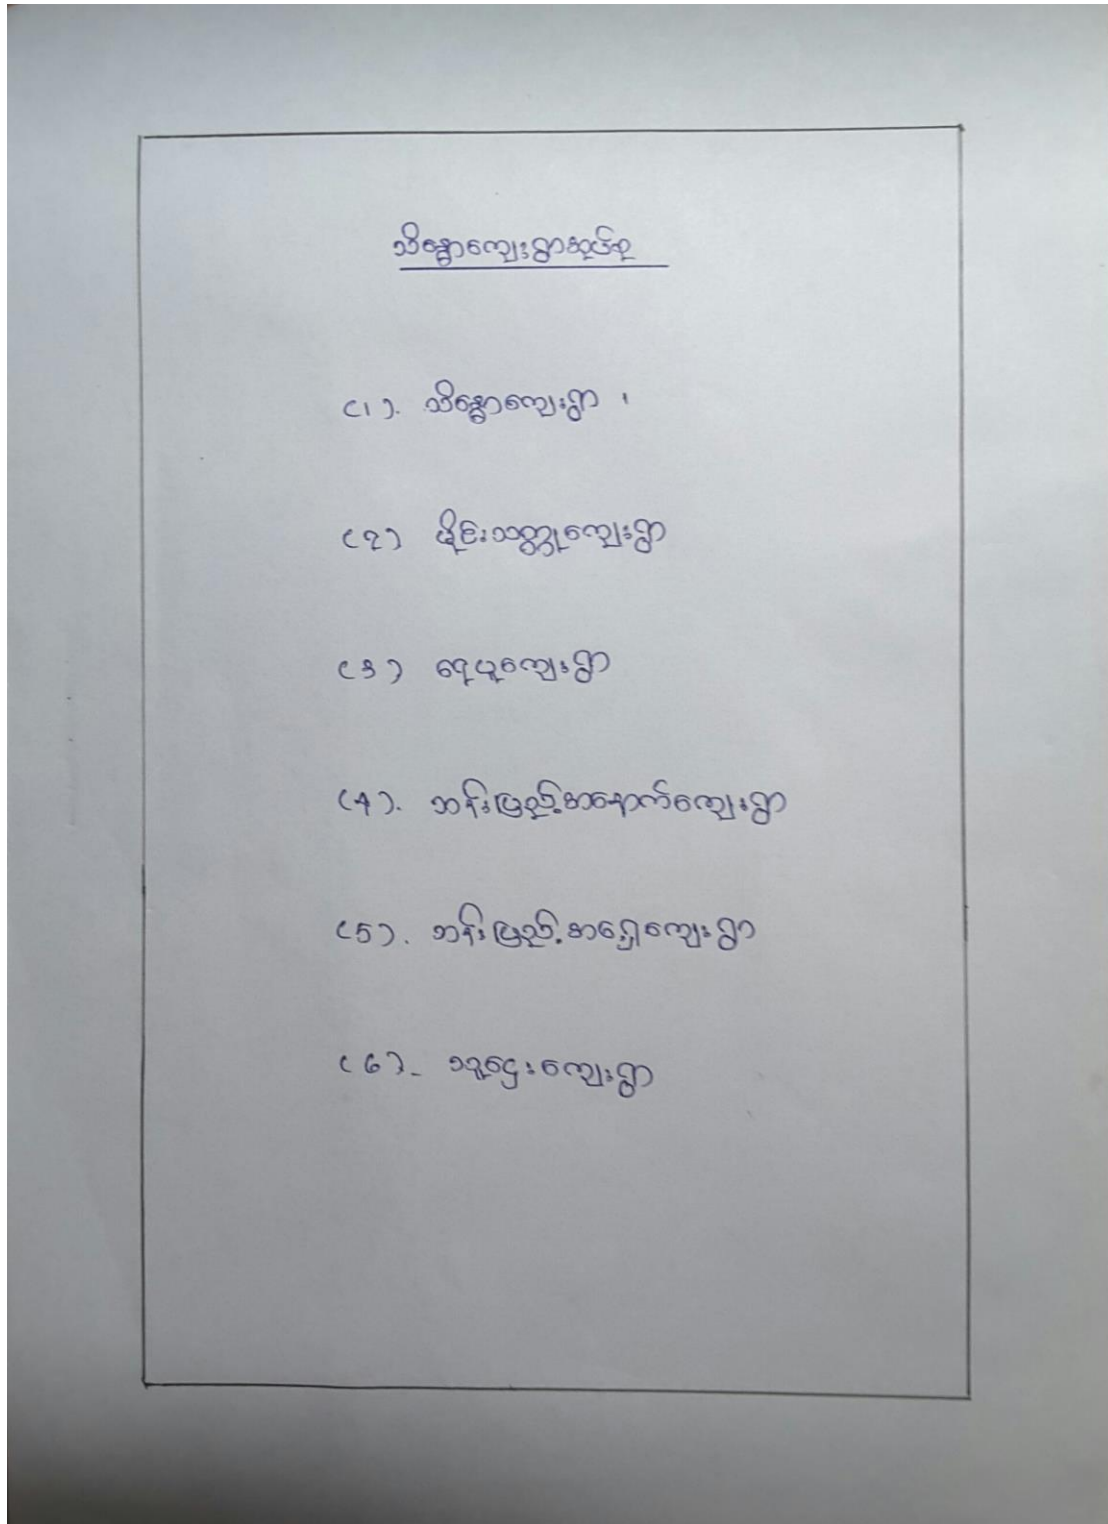 သိန္ဓောကျေးရွာအုပ်စု
(၁). သိန္ဓောကျေးရွာ ၊
(၂) မိုင်းသတ္တုကျေးရွာ
(၃) ရေပူကျေးရွာ
(၄). ဘန်းပြည့်အနောက်ကျေးရွာ
(၅). ဘန်းပြည့်အရှေ့ကျေးရွာ
(၆)- သူဌေးကျေးရွာ